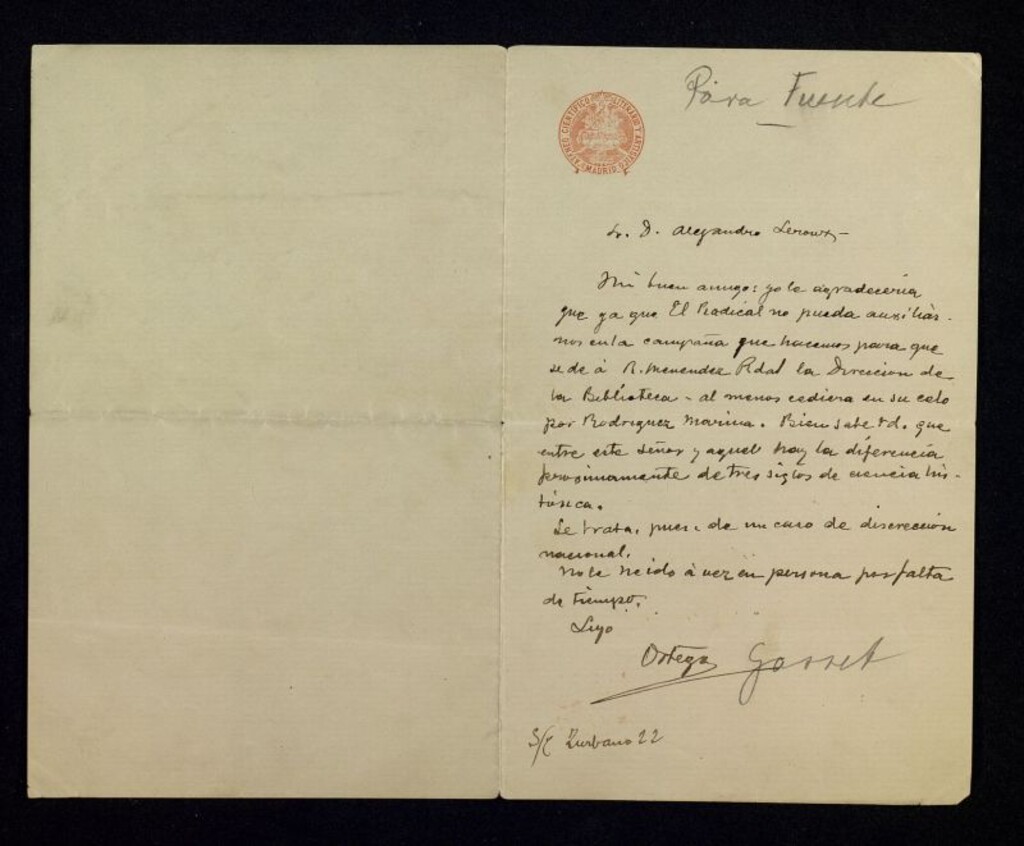 Para Fuente
ATENEO CIENTIFICO LITERARIO Y ARTISTICO
MADRID
Sr. D. Alejandro Lerroux
Mi buen amigo: yo le agradecería
que ya que El Radical no pueda auxiliar-
nos en la campaña que hacemos para que
se dé á R. Menendez Pidal la Direccion de
la Biblioteca - al menos cediera en su celo
por Rodriguez Marina. Bien sabe Vd. que
entre este señor y aquel hay la diferencia
proximamente de tres siglos de ciencia his-
tórica.
Se trata, pues, de un caso de discreción
nacional.
No le he ido á ver en persona por falta
de tiempo.
Suyo
Ortega Gasset
S/C Zurbano 22